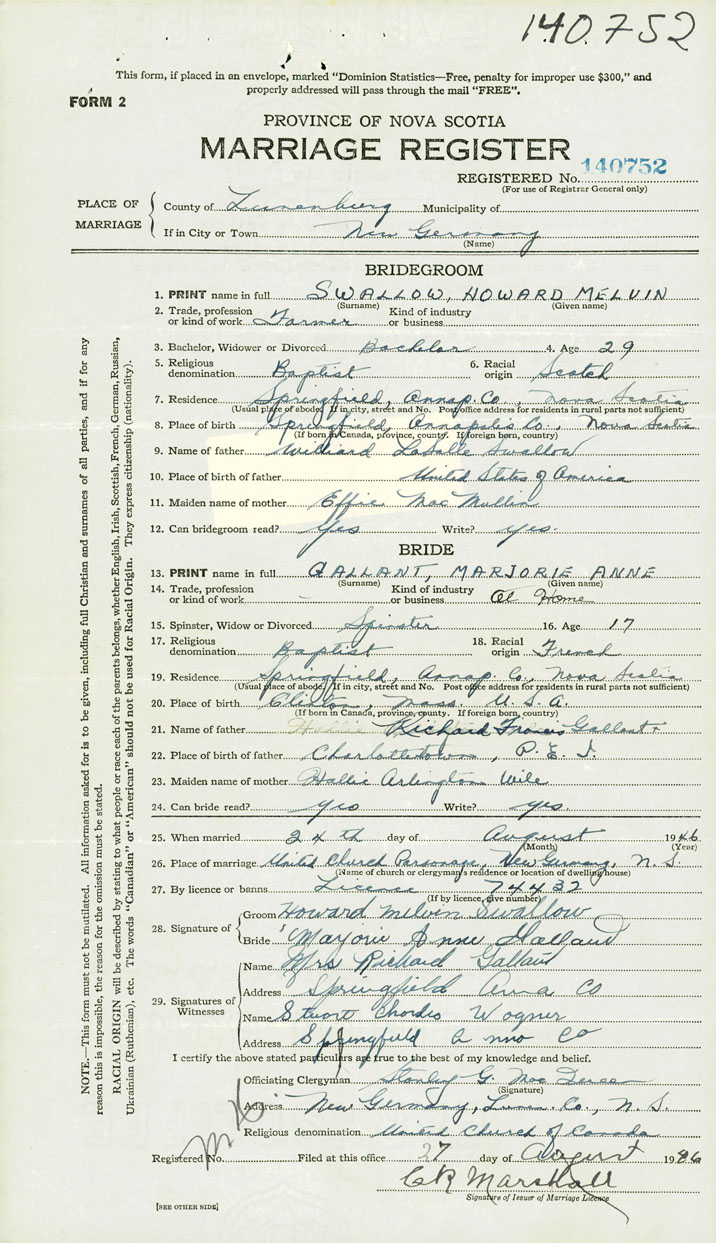 140752
This form, if placed in an envelope, marked "Dominion Statistics—Free, penalty for improper use $300," and
properly addressed will pass through the mail "FREE".
FORM 2
PROVINCE OF NOVA SCOTIA
MARRIAGE REGISTER
REGISTERED No. 140752
(For use of Registrar General only)
PLACE OF MARRIAGE
County of Lunenburg Municipality of
If in City or Town New Germany
(Name)
BRIDEGROOM
1. PRINT name in full SWALLOW, HOWARD MELVIN
(Surname) (Given name)
2. Trade, profession or kind of work Farmer Kind of industry or business
3. Bachelor, Widower or Divorced Bachelor 4. Age 29
5. Religious denomination Baptist 6. Racial origin Scotch
7. Residence Springfield, Annap. Co., Nova Scotia
(Usual place of abode. If in city, street and No. Post office address for residents in rural parts not sufficient)
8. Place of birth Springfield, Annapolis Co., Nova Scotia
(If born in Canada, province, county. If foreign born, country)
9. Name of father Williard LaSalle Swallow
10. Place of birth of father United States of America
11. Maiden name of mother Effie MacMullin
12. Can bridegroom read? Yes Write? yes.
BRIDE
13. PRINT name in full GALLANT, MARJORIE ANNE
(Surname) (Given name)
14. Trade, profession or kind of work — Kind of industry or business At Home
15. Spinster, Widow or Divorced Spinster 16. Age 17
17. Religious denomination Baptist 18. Racial origin French
19. Residence Springfield, Annap. Co., Nova Scotia
(Usual place of abode. If in city, street and No. Post office address for residents in rural parts not sufficient)
20. Place of birth Clinton, Mass. U.S.A.
(If born in Canada, province, county. If foreign born, country)
21. Name of father Richard Francis Gallant
22. Place of birth of father Charlottetown, P.E.I.
23. Maiden name of mother Hallie Arlington Wile
24. Can bride read? yes Write? yes.
25. When married 24th day of August 1946
(Month) (Year)
26. Place of marriage United Church Parsonage, New Germany, N.S.
(Name of church or clergyman's residence or location of dwelling house)
27. By licence or banns Licence 74432
(If by licence, give number)
28. Signature of
Groom Howard Melvin Swallow
Bride Marjorie Anne Galland
29. Signatures of Witnesses
Name Mrs Richard Galland
Address Springfield Anna Co
Name Stuart Wagner
Address Springfield Anna Co
I certify the above stated particulars are true to the best of my knowledge and belief.
Officiating Clergyman Stanley G. Mac
(Signature)
Address New Germany, Lunen. Co., N.S.
Religious denomination United Church of Canada
Registered No. Filed at this office 27 day of August 1946
C R Marshall
Signature of Issuer of Marriage Licence
[SEE OTHER SIDE]
NOTE.—This form must not be mutilated. All information asked for is to be given, including full Christian and surnames of all parties, and if for any
reason this is impossible, the reason for the omission must be stated.
RACIAL ORIGIN will be described by stating to what people or race each of the parents belongs, whether English, Irish, Scottish, French, German, Russian,
Ukrainian (Ruthenian), etc. The words "Canadian" or "American" should not be used for Racial Origin. They express citizenship (nationality).